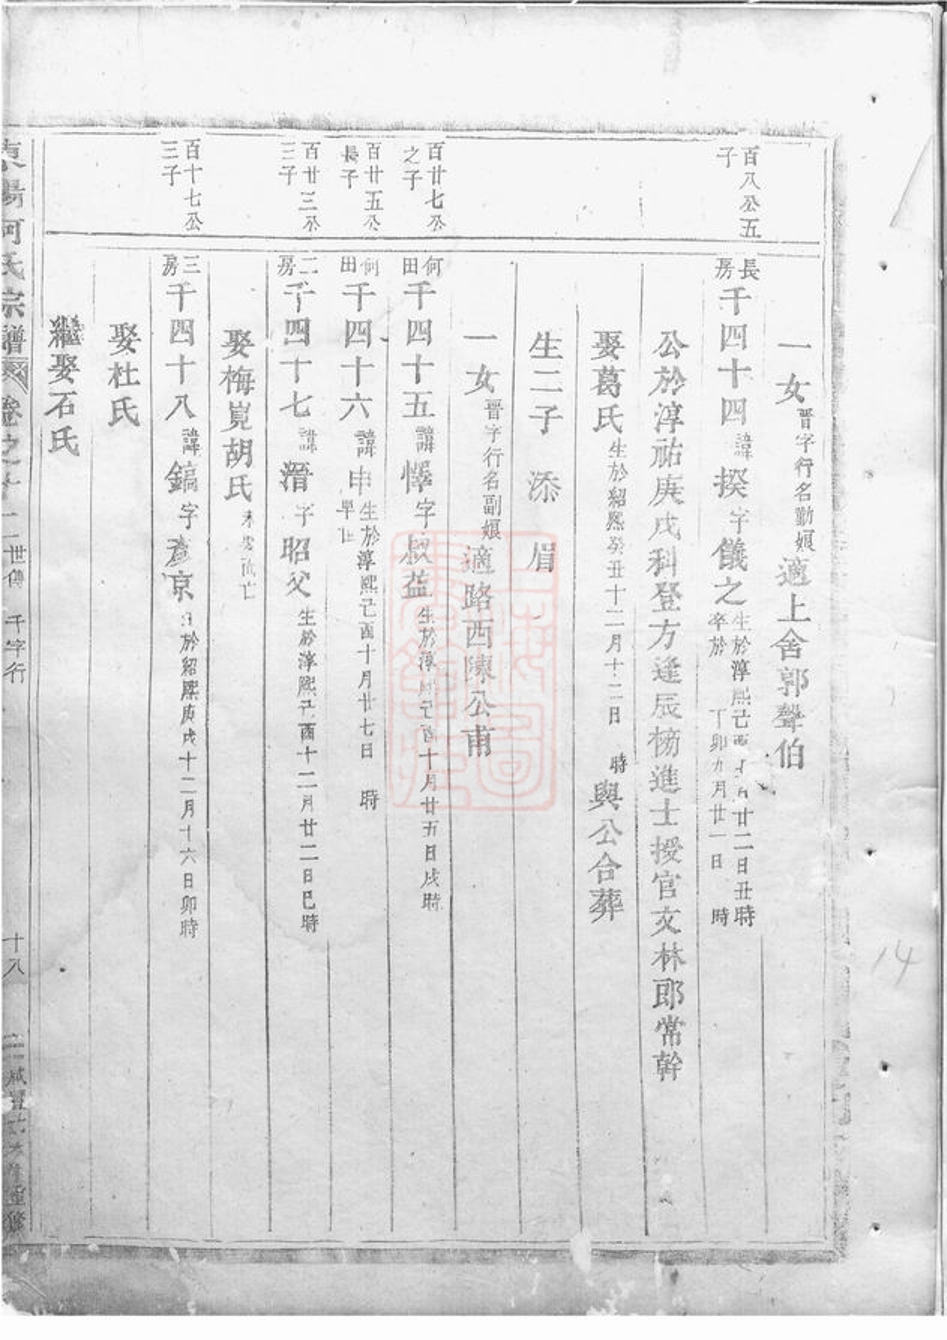 一女晋字行名勤娘適上舍郭聲伯
百八公五子
長房千四十四諱揆字儀之生於淳熙己酉十月廿二日丑時卒於丁卯九月廿一日時
公於淳祐庚戌科登方逢辰榜進士授官文林郎常幹
娶葛氏生於紹熙癸丑十二月十二日時與公合葬
生二子添眉
一女晋字行名副娘適路西陳公甫
百廿七公之子
何田千四十五諱懌字叔益生於淳熙己酉十月廿五日戌時
百廿五公長子
何田千四十六諱申生於淳熙己酉十月廿七日時早世
百廿三公三子
二房千四十七諱溍字昭父生於淳熙己酉十二月廿二日巳時
娶梅峴胡氏
百十七公三子
三房千四十八諱鎬字彥京生於紹熙庚戌十二月十六日卯時
娶杜氏
繼娶石氏
東陽何氏宗譜卷之十二世傳千字行十八咸豐重修